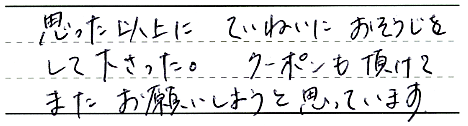 思った以上に ていねいに おそうじを
して下さった。 クーポンも頂けて
また お願いしようと思っています